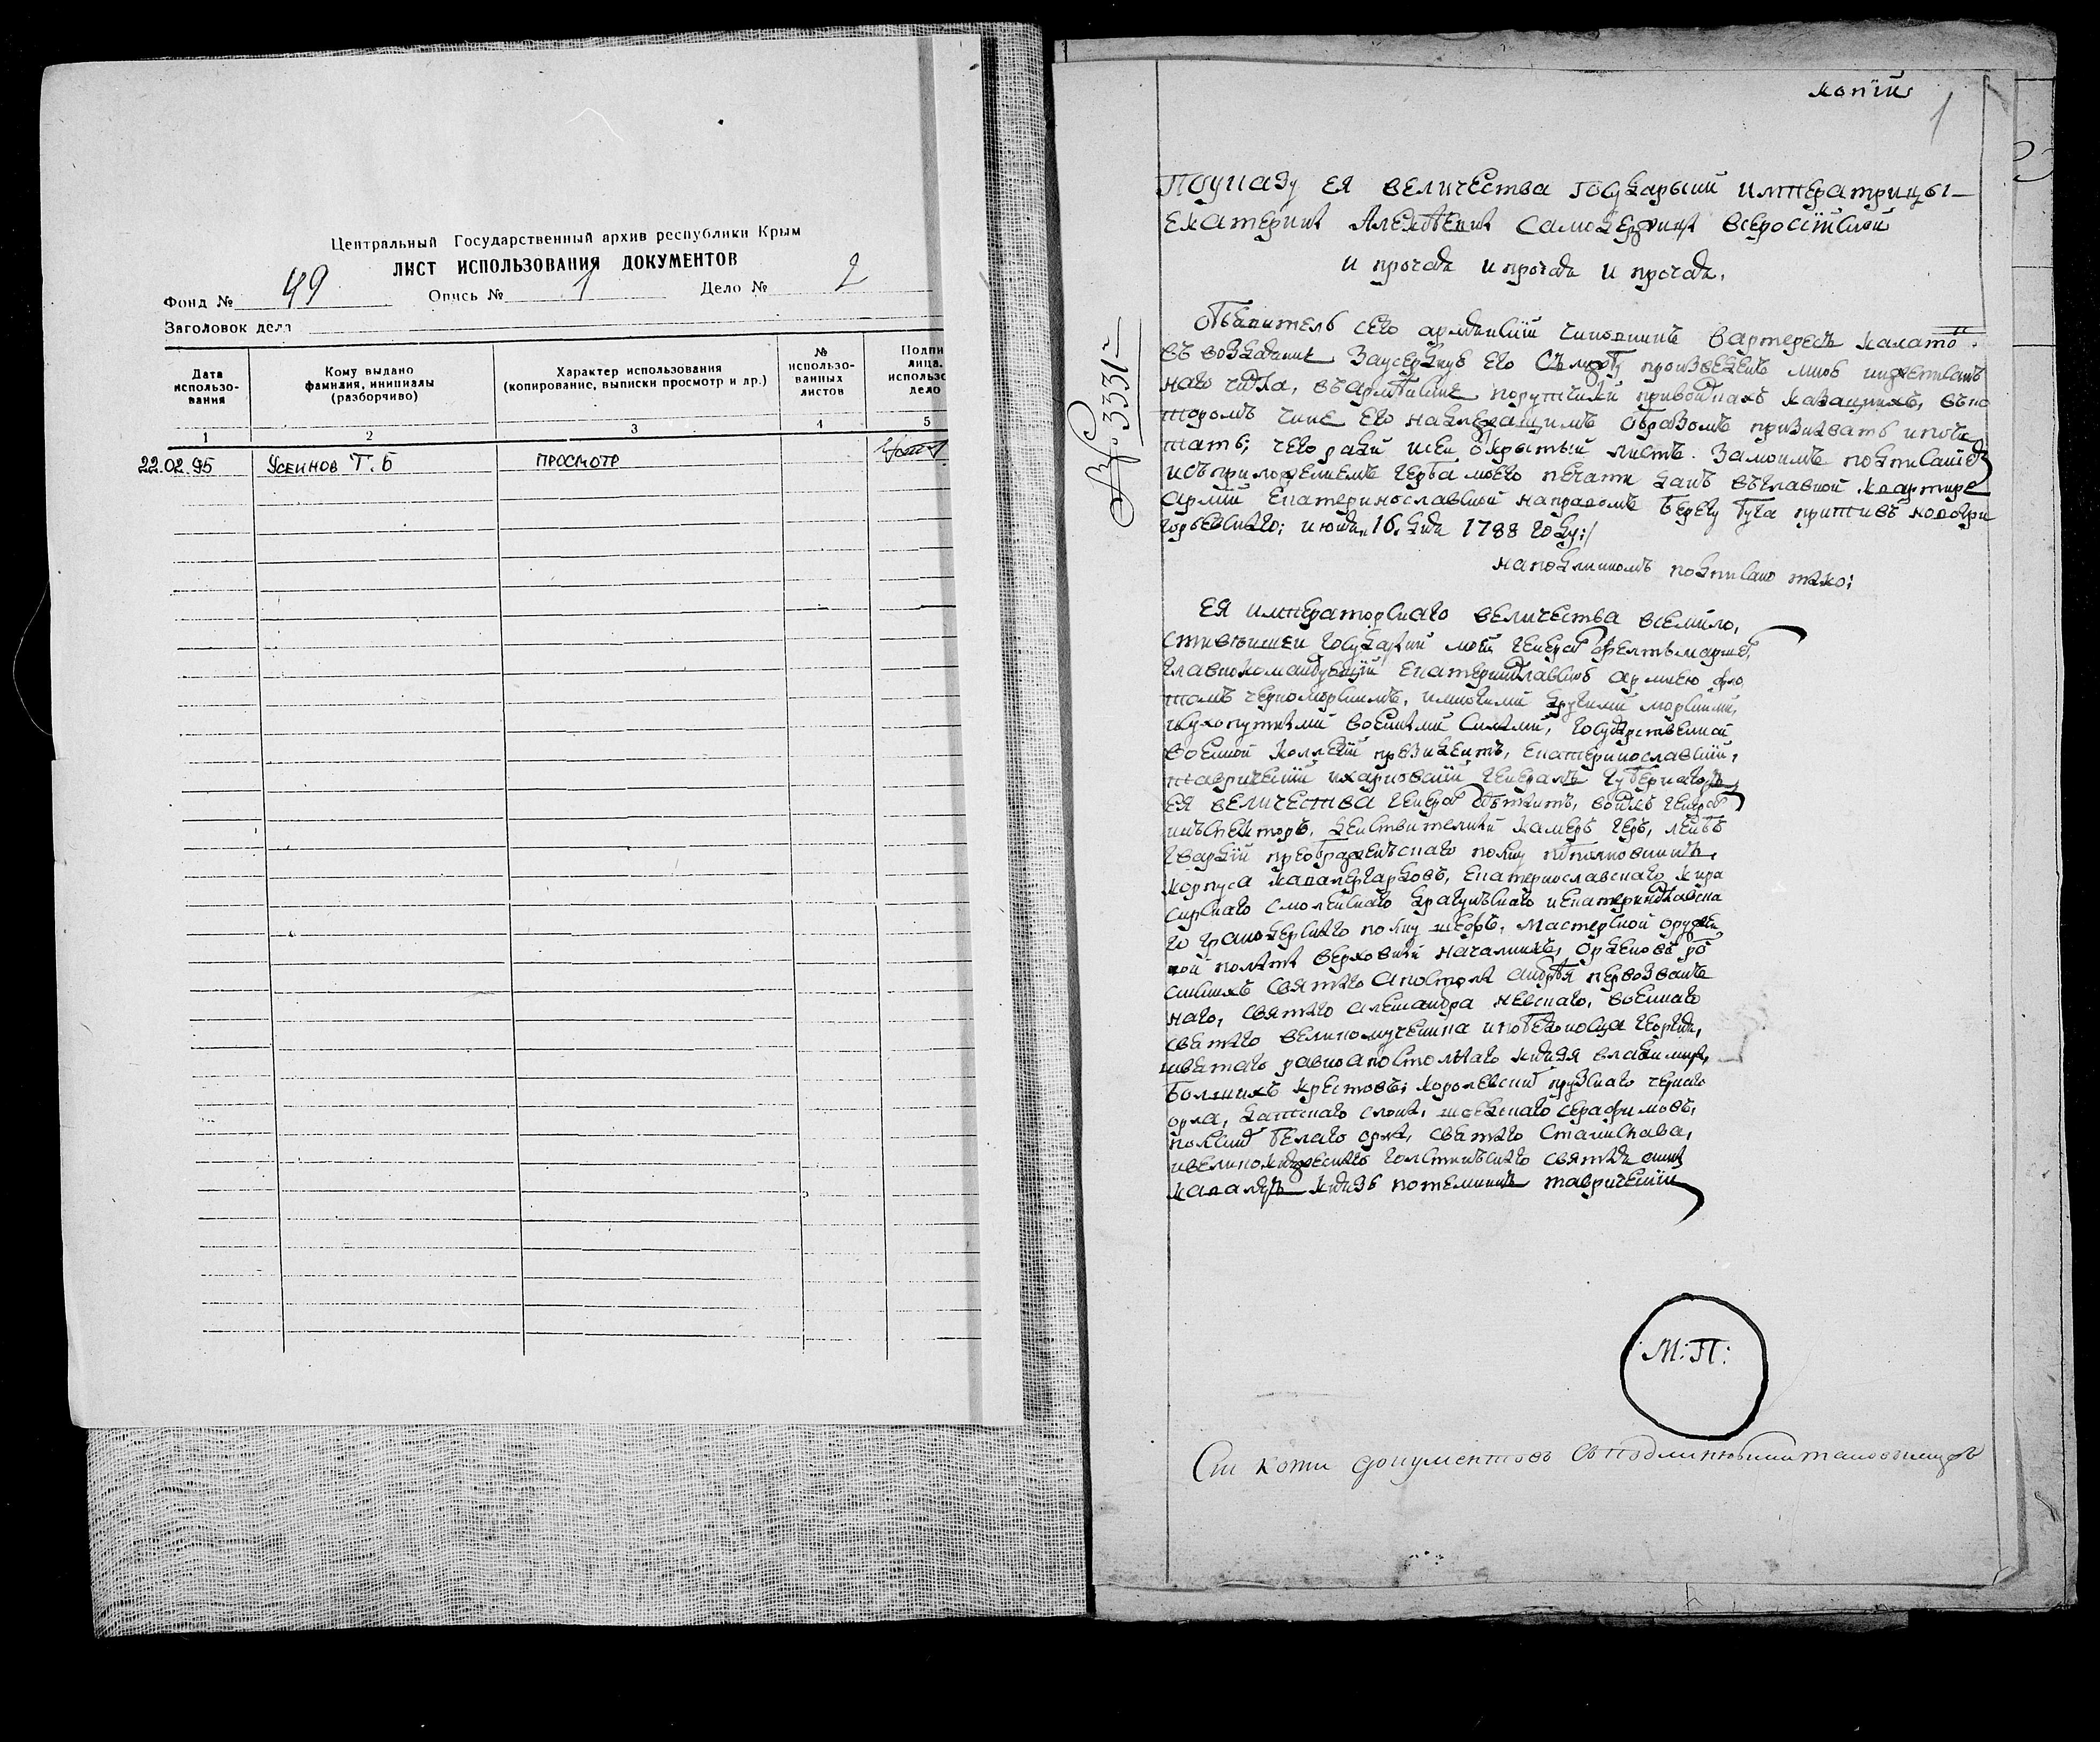 Центральный Государственный архив республики Крым
ЛИСТ ИСПОЛЬЗОВАНИЯ ДОКУМЕНТОВ
Фонд № 49 Опись № 1 Дело № 2
Заголовок дела
Дата использования
Кому выдано фамилия, инициалы (разборчиво)
Характер использования (копирование, выписки просмотр и др.)
№ использованных листов
Подпи лица, использо дело
1 2 3 4 5
22.02.95 Усеинов Т.Б ПРОСМОТР
копiи
1
№ 3331
По указу ея величества государыни императрицы
Екатерины Алексѣевны самодержицы всеросiйской
и прочая и прочая и прочая.
обьявитель сего армянскiй чиновникъ вартересъ
въ воздаяние за усердную его службу произведенъ мною
наго числа, въ армейские порутчики
торомъ чине его надлежащимъ образомъ признавать и почи
тать; чего ради и сей открытый листъ. За моимъ подписанiем
и съ приложениемъ герба моего печати данъ въ главной квартире
армiи Екатеринославской на правомъ берегу буга противъ новогри
горьевскаго; июня 16 дня 1788 году:/
на подлинномъ подписано тако:
Ея императорскаго величества всемило,
стивѣишеи государыни моей генералъ фелтьмаршал,
главнокомандующiй Екатеринославскою армиею фло
томъ черноморскимъ, и многими другими морскими,
и сухопутными военными силами, государственной
военной коллегiи президентъ, Екатеринославскiй,
таврическiй и харковскiй генералъ губернаторъ
Ея величества генералъ адъютантъ, войскъ генералъ
инъспекторъ, действителный камеръ геръ, лейбъ
гвардiи преображенъскаго полку подполковникъ,
корпуса кавалергардовъ, Екатеринославскаго кира
сирскаго смоленскаго драгунскаго и Екатеринославска
го гранодерскаго полку шефъ, Мастерской оружей
ной полаты верховный началникъ, орденовъ ро
сийскихъ святаго апостола андрея первозванъ
наго, святаго александра невскаго, военнаго
святаго великомученика и победоносца георгия,
и святаго равноапостолнаго князя владимира,
болшихъ крестовъ; королевских прускаго чернаго
орла, датскаго слона, шведскаго серафимовъ,
полских белаго орла, святаго станислава,
и великокняжескаго голстинскаго святыя анны
кавалеръ князь потемкинъ таврическiй
М: П:
Сiи копiи документовъ